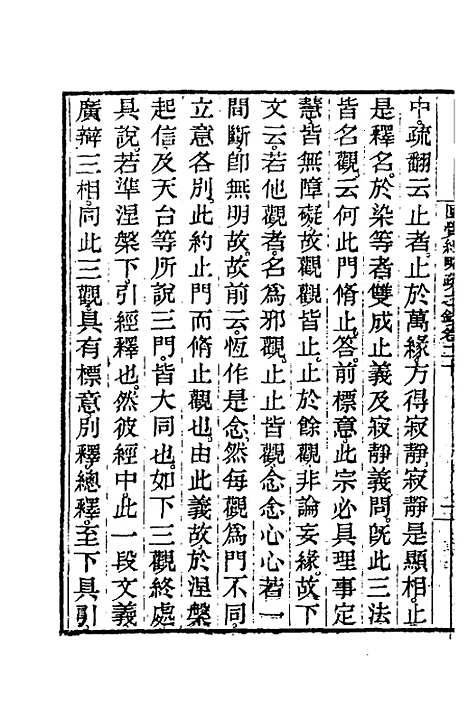 中疏翻云止者止於萬緣方得寂靜寂靜是顯相止
是釋名於染等者雙成止義及寂靜義問旣此三法
皆名觀云何此門脩止答前標意此宗必具理事定
慧皆無障礙故觀觀皆止止於餘觀非論妄緣故下
文云若他觀者名爲邪觀止止皆觀念念心心若一
間斷卽無明故故前云恆作是念然每觀爲門不同
立意各別此約止門而脩止觀也由此義故於涅槃
起信及天台等所說三門皆大同也如下三觀終處
具說若準涅槃下引經釋也然彼經中此一段文義
廣辯三相同此三觀具有標意別釋總釋至下具引